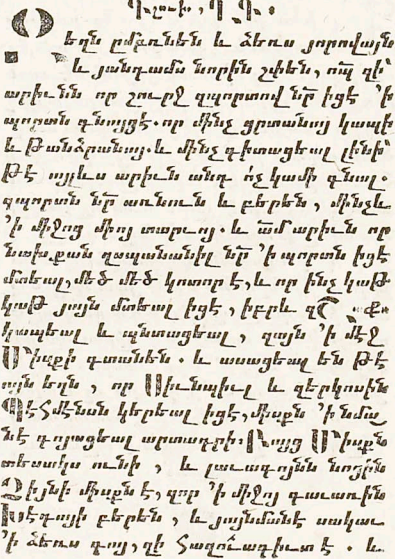 Օ եղն ըմբռնեն և ձեռս յորովայն
և յանդամն նորին շփեն, զի՝
արիւնն որ շուրջ զպորտով նր̃ իցէ ՚ի
պորտն գնոյցէ. որ մինչ ցրտանայ կապի
և թանձրանայ. և մինչ գիտացեալ լինի՝
թէ այլևս արիւն անդ ոչ կամի գնալ.
զպորտն նր̃ առնուն և բերեն, մինչև
՚ի միջոց միոյ տարւոյ. և ամ̃ արիւն որ
նախքան զսպանանիլ նր̃ ՚ի պորտն իցէ
մտեալ, մեծ մեծ կոտոր է, և որ ինչ կաթ
կաթ յայն մտեալ իցէ, իբրև
կապեալ և պնտացեալ, զայն ՚ի մէջ
Միսքի գտանեն. և ասացեալ են թէ
այն եղն, որ Սիւնպիւլ և զերկոսին
Պէհմենսն կերեալ իցէ, միսքն ՚ի նմա
նէ գոյացեալ արտադրի։ Բայց Միսքն
տեսակս ունի, և լաւագոյնն նոցին
Չինի միսքն է, զոր ՚ի միջոյ գաւառին
բերեն, և սակաւ
՚ի ձեռս գայ, զի հազուագիւտ է և